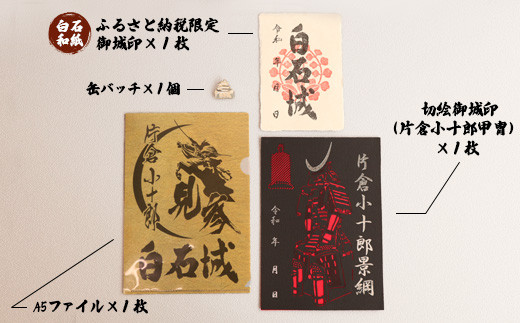 白石
和紙
ふるさと納税限定
御城印×1枚
令和 年 月 日
白石城
缶バッチ×1個
切絵御城印
(片倉小十郎甲冑)
×1枚
片倉小十郎
見参
白石城
片倉小十郎景綱
令和 年 月 日
A5ファイル×1枚